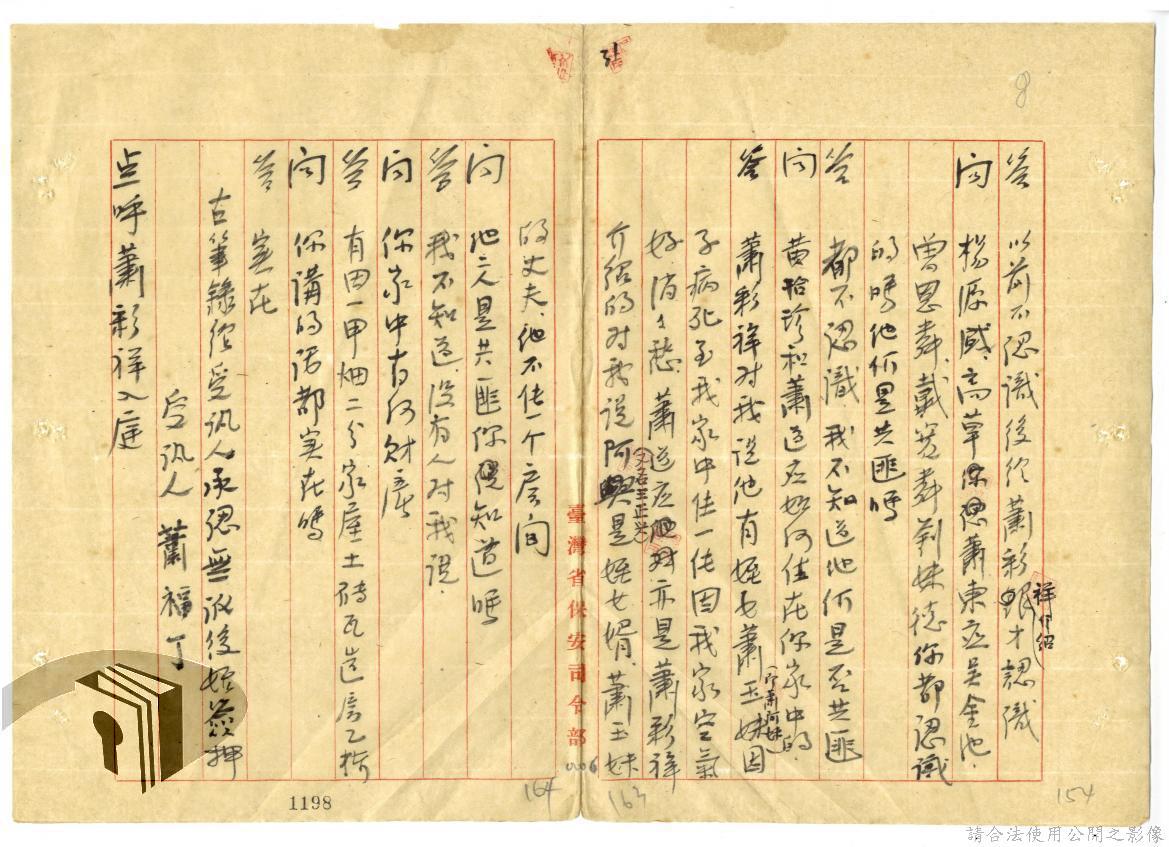 答 以前不認識後經蕭彩祥介紹才認識
問 楊源盛、高草、蕭東庄吳金池、
曾恩舜、戴芳舜 妹德你都認識
的嗎他們是共匪嗎
答 都不認識、我不知道他們是否共匪
問 黃怡珍和蕭道应如何住在你家中的
答 蕭彩祥對我說他有姪女蕭玉妹(又名蕭阿妹)因
子病死至我家中住一住因我家空氣
好、消々愁、蕭道应(又名王正光)亦是蕭彩祥
介紹的对我說阿興是姪女婿、蕭玉妹
的丈夫、他不住一个房间
問 他二人是共匪你知道嗎
答 我不知道、沒有人对我說、
問 你家中有何財產
答 有田一甲畑二分家屋土磚瓦造房乙棟
問 你講的话都实在嗎
答 实在
右筆錄經受訊人承認無訛後始簽押
受訊人 蕭福丁
点呼蕭彩祥入庭
臺灣省保安司令部
0006
8
154
163
164
1198
請合法使用公開之影像